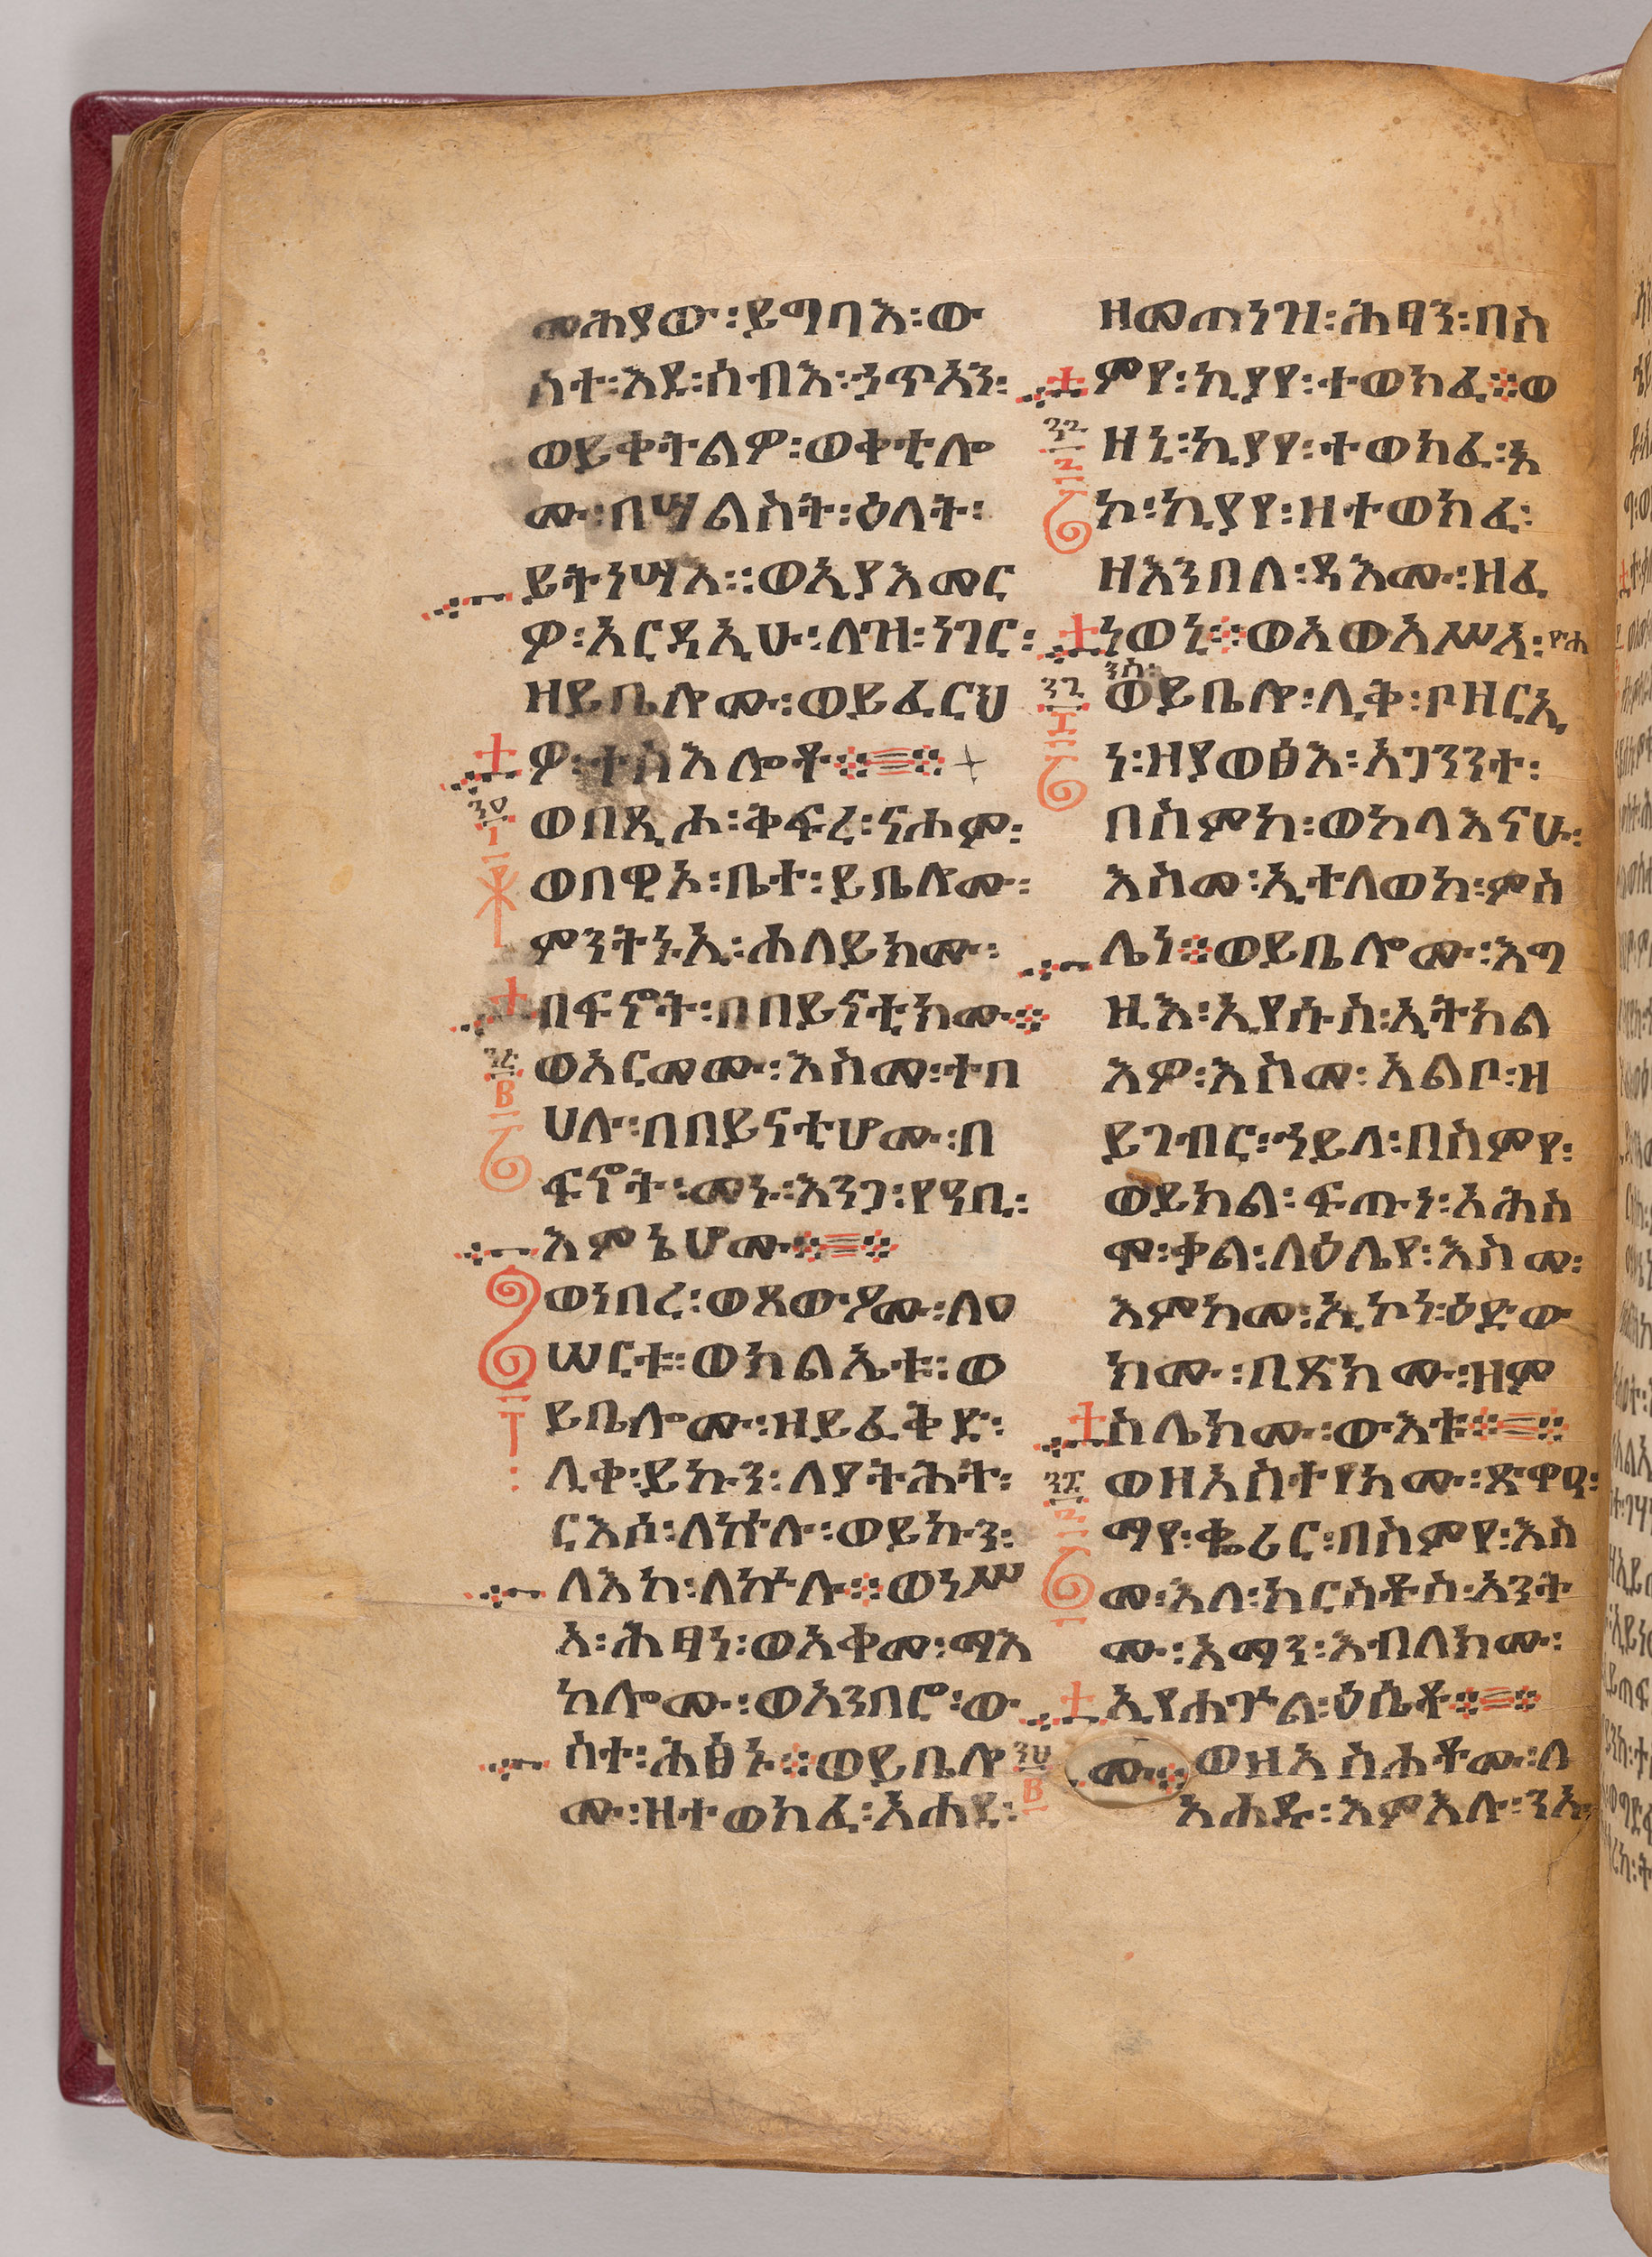 መሕያው፡ይግባእ፡ው
ስተ፡እደ፡ሰብእ፡ኃጥኣን፡
ወይቀትልዎ፡ወቀቲሎ
ሙ፡በሣልስት፡ዕለት፡
ይትነሣእ፡፡ወኢያእመር
ዎ፡አርዳኢሁ፡ለዝ፡ነገር፡
ዘይቤሎሙ፡ወይፈርህ
ዎ፡ተስእሎቶ፨
ወበጺሖ፡ቅፍረ፡ናሐም፡
ወበዊኦ፡ቤተ፡ይቤሎሙ፡
ምንትኑኢ፡ሐለይክሙ፡
በፍኖት፡በበይናቲክሙ፨
ወአርመሙ፡እስመ፡ተበ
ሀሉ፡በበይናቲሆሙ፡በ
ፍኖት፡መኑ፡እንጋ፡የዓቢ፡
እምኔሆሙ፨
ወነበረ፡ወጸውዖሙ፡ለዐ
ሠርቱ፡ወክልኤቱ፡ወ
ይቤሎሙ፡ዘይፈቅድ፡
ሊቀ፡ይኩን፡ለያትሕት፡
ርእሶ፡ለኵሉ፡ወይኩን፡
ለእከ፡ለኵሉ፨ወነሥ
አ፡ሕፃነ፡ወአቀመ፡ማእ
ከሎሙ፡ወአንበሮ፡ው
ስተ፡ሕፅኑ፨ወይቤሎ
ሙ፡ዘተወክፈ፡አሐደ፡
ዘመጠነዝ፡ሕፃን፡በስ
ምየ፡ኪያየ፡ተወክፈ፨ወ
ዘኒ፡ኪያየ፡ተወክፈ፡አ
ኮ፡ኪያየ፡ዘተወክፈ፡
ዘእንበለ፡ዳእሙ፡ዘፈ
ነወኒ፨ወአውአሥአ፡ዮሐ
ንስ፡
ወይቤሎ፡ሊቅ፡ቦዘርኢ
ነ፡ዘያወፅእ፡አጋንንተ፡
በስምከ፡ወከላእናሁ፡
እስመ፡ኢተለወከ፡ምስ
ሌነ፨ወይቤሎሙ፡እግ
ዚእ፡ኢየሱስ፡ኢትከል
እዎ፡እስመ፡አልቦ፡ዘ
ይገብር፡ኀይለ፡በስምየ፡
ወይክል፡ፍጡነ፡አሕስ
ሞ፡ቃል፡ለዕሌየ፡እስመ፡
እምከመ፡ኢኮነ፡ዕድው
ክሙ፡ቢጽክሙ፡ዘም
ስሌክሙ፡ውእቱ፨
ወዘአስተየክሙ፡ጽዋዐ፡
ማየ፡ቈሪር፡በስምየ፡እስ
መ፡እለ፡ክርስቶስ፡አንት
ሙ፡አማን፡እብለክሙ፡
ኢየሐጕል፡ዕሴቶ፨
ወዘአስሐቶሙ፡ለ
አሐዱ፡እምእሉ፡ንኡ